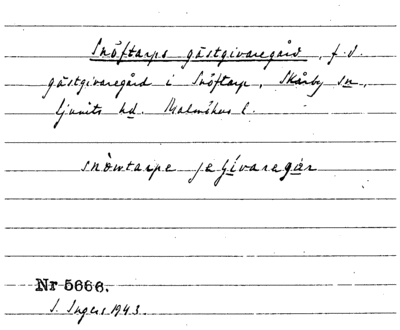 Snöftarps gästgivaregård, f.d.
gästgivaregård i Snöftarp, Skårby sn,
Ljunits hd. Malmöhus l.
snòwtarpe jeʃívaregår
Nr 5666.
S. Ingers 1943.